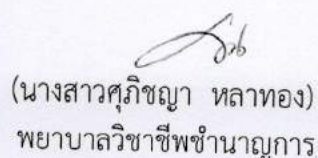 (นางสาวศุภิชญา หลาทอง)
พยาบาลวิชาชีพชำนาญการ